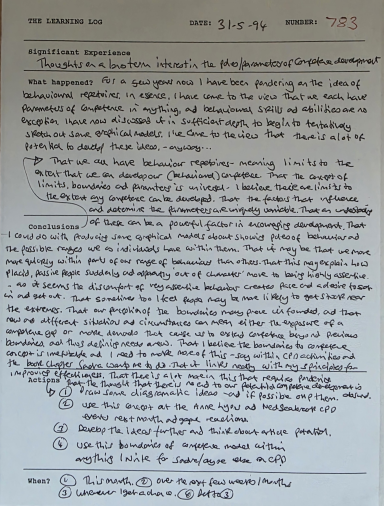 THE LEARNING LOG DATE: 31-5-94 NUMBER: 783
Significant Experience
Thoughts on a long term interest in the poles/parameters of Competence development
What happened? For a few years now I have been pondering on the idea of
behavioural repertoires. In essence, I have come to the view that we each have
Parameters of Competence in anything, and behavioural skills and abilities are no
exception. I have now discussed it in sufficient depth to begin to tentatively
sketch out some graphical models. I've come to the view that there is a lot of
potential to develop these ideas, - anyway...
That we all have behaviour repertoires - meaning limits to the
extent that we can develop our (behavioural) Competence. That the concept of
limits, boundaries and parameters is universal - I believe there are limits to
the extent any competence can be developed. That the factors that influence
and determine the parameters are uniquely variable. That an understanding
Conclusions of these can be a powerful factor in encouraging development. That
I could do with producing some graphical models about showing poles of behaviour and
the possible ranges we as individuals have within them. That it may be that we move
more quickly within parts of our range of behaviours than others. That this may explain how
placid, passive people suddenly and apparently 'out of character' move to being highly assertive
- as it seems the discomfort of very assertive behaviour creates pace and a desire to get
in and get out. That sometimes too I feel people may be most likely to get stuck near
the extremes. That our perception of the boundaries may prove unfounded, and that
new and different situations and circumstances can mean either the exposure of a
competence gap or more demands that cause us to extend competence beyond previous
boundaries and thus defining new areas. That I believe the boundaries to competence
concept is and I need to make more of this - say within CPD activities and
the book chapter Sadie wants me to do. That it links neatly with my 5 principles for
improving effectiveness. That there's a lot more in this that requires pondering
Actions but the thought that there is no end to our potential competence development is absurd.
① Draw some diagrammatic ideas - and if possible on them.
② use this concept at the Anne and Med CPD
events next month and gauge reactions
③ Develop the ideas further and think about article potential.
④ use this boundaries of competence models within
anything I write for Sadie/anyone else on CPD
When? ① This month. ② over the next few weeks/months
③ whenever I get a chance. ④ ditto ③